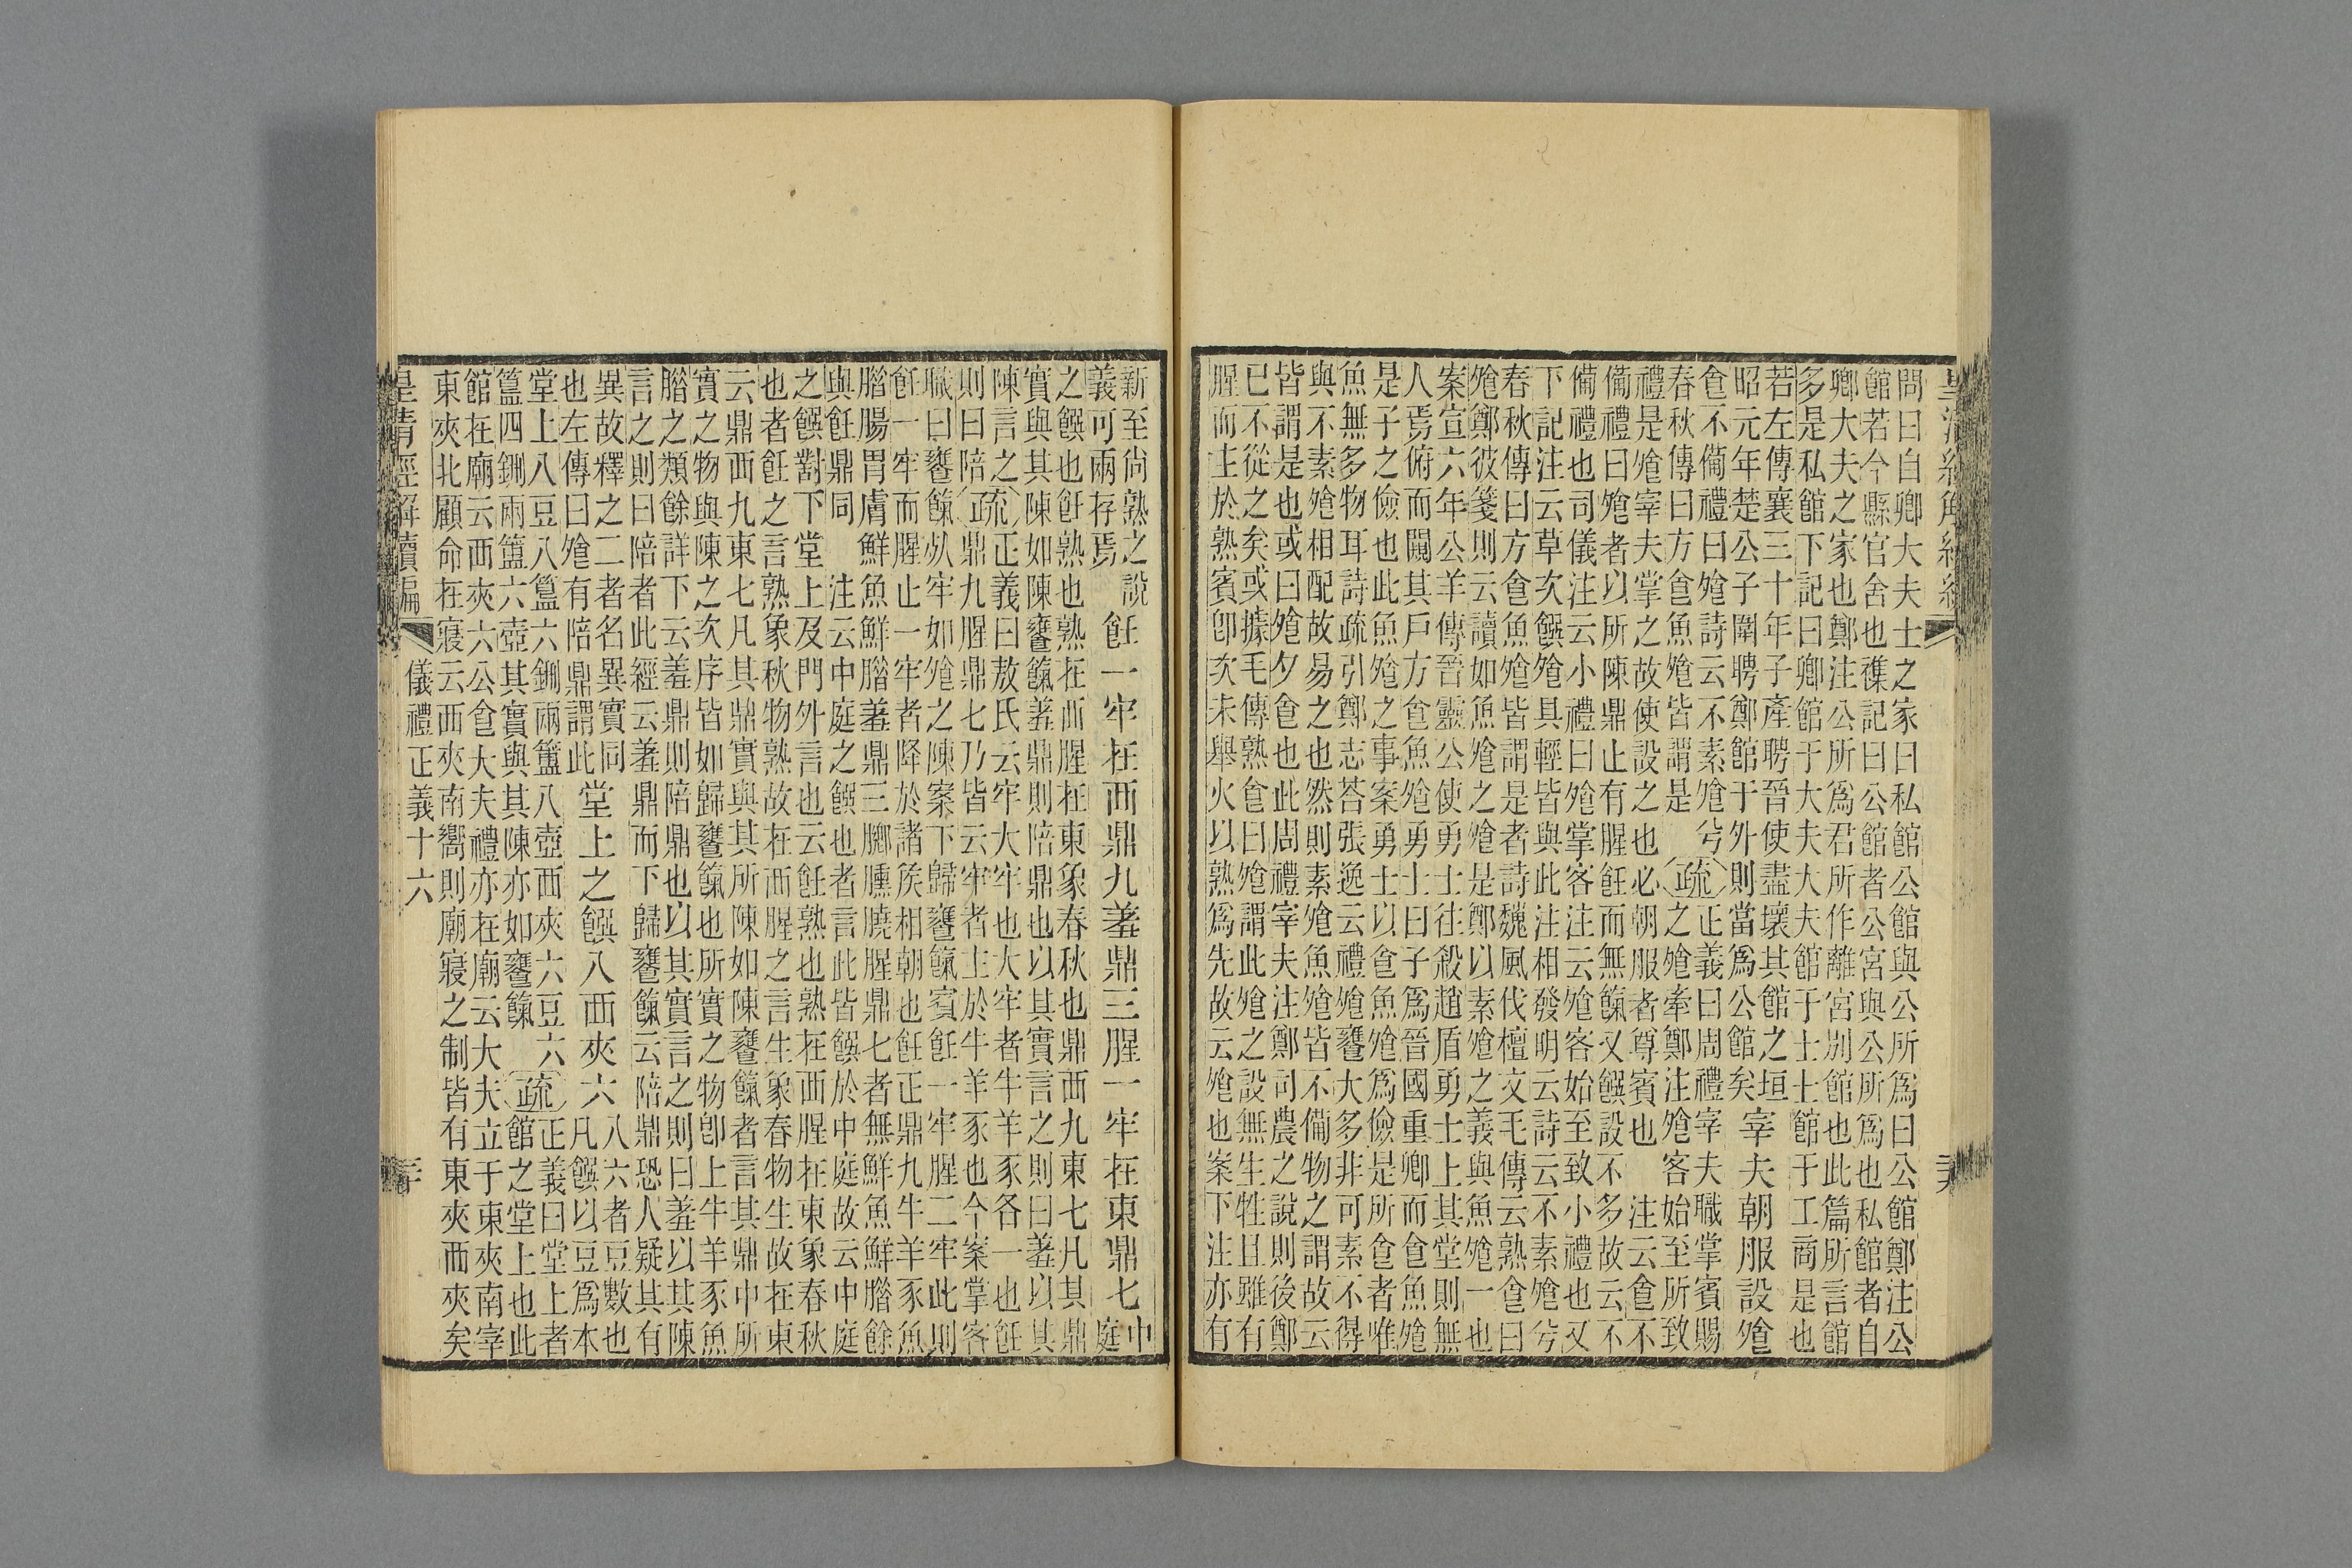 問曰自卿大夫士之家曰私館公館與公所爲曰公館鄭注公
館若今縣官舍也襍記曰公館者公宮與公所爲也私館者自
卿大夫之家也鄭注公所爲君所作離宮別館也此篇所言館
多是私館下記曰卿館于大夫大夫館于士士館于工商是也
若左傳襄三十年子產聘晉使盡壞其館之垣
昭元年楚公子圍聘鄭館于外則當爲公館矣
宰夫朝服設飱
食不僃禮曰飱詩云不素飱兮
春秋傳曰方食魚飱皆謂是
疏
正義曰周禮宰夫職掌賓賜
之飱牽鄭注飱客始至所致
禮是飱宰夫掌之故使設之也必朝服者尊賓也 注云食不
僃禮曰飱者以所陳鼎止有腥飪而無餼又饌設不多故云不
僃禮也司儀注云小禮曰飱掌客注云飱客始至致小禮也又
下記注云草次饌飱具輕皆與此注相發明云詩云不素飱兮
春秋傳曰方食魚飱皆謂是者詩魏風伐檀文毛傳云熟食曰
飱鄭彼箋則云讀如魚飱之飱是鄭以素飱之義與魚飱一也
案宣六年公羊傳晉靈公使勇士往殺趙盾勇士上其堂則無
人焉俯而闚其戶方食魚飱勇士曰子爲晉國重卿而食魚飱
是子之儉也此魚飱之事案勇士以食魚飱爲儉是所食者唯
魚無多物耳詩疏引鄭志荅張逸云禮飱饔大多非可素不得
與不素飱相配故易之也然則素飱魚飱皆不僃物之謂故云
皆謂是也或曰飱夕食也此周禮宰夫注鄭司農之說則後鄭
已不從之矣或據毛傳熟食曰飱謂此飱之設無生牲且雖有
腥而主於熟賓卽次未舉火以熟爲先故云飱也案下注亦有
新至尙熟之說
義可兩存焉
飪一牢在西鼎九羞鼎三腥一牢在東鼎七
中
庭
之饌也飪熟也熟在西腥在東象春秋也鼎西九東七凡其鼎
實與其陳如陳饔餼羞鼎則陪鼎也以其實言之則曰羞以其
陳言之
則曰陪
疏
正義曰敖氏云牢大牢也大牢者牛羊豕各一也飪
鼎九腥鼎七乃皆云牢者主於牛羊豕也今案掌客
職曰饔餼眡牢如飱之陳案下歸饔餼賓飪一牢腥二牢此則
飪一牢而腥止一牢者降於諸侯相朝也飪正鼎九牛羊豕魚
腊腸胃膚鮮魚鮮腊羞鼎三膷臐膮腥鼎七者無鮮魚鮮腊餘
與飪鼎同 注云中庭之饌也者言此皆饌於中庭故云中庭
之饌對下堂上及門外言也云飪熟也熟在西腥在東象春秋
也者飪之言熟象秋物熟故在西腥之言生象春物生故在東
云鼎西九東七凡其鼎實與其所陳如陳饔餼者言其鼎中所
實之物與陳之次序皆如歸饔餼也所實之物卽上牛羊豕魚
腊之類餘詳下云羞鼎則陪鼎也以其實言之則曰羞以其陳
言之則曰陪者此經云羞鼎而下歸饔餼云陪鼎恐人疑其有
異故釋之二者名異實同
也左傳曰飱有陪鼎謂此
堂上之饌八西夾六
八六者豆數也
凡饌以豆爲本
堂上八豆八簋六鉶兩簠八壺西夾六豆六
簋四鉶兩簠六壺其實與其陳亦如饔餼
疏
正義曰堂上者
館之堂上也此
館在廟云西夾六公食大夫禮亦在廟云大夫立于東夾南宰
東夾北顧命在寢云西夾南嚮則廟寢之制皆有東夾西夾矣
皇清經解續編
儀禮正義十六